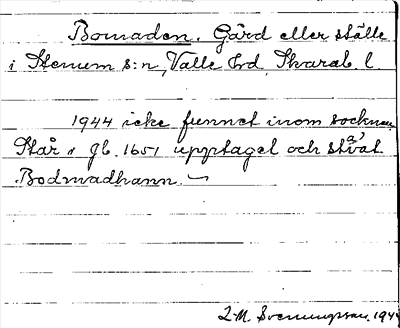 Bomaden. Gård eller ställe
i Stenum s:n, Valle hd, Skarab. l.
1944 icke funnet inom socknen.
Står i jb. 1651 upptaget och skrivet
Bodmadhann.
L-M. Svenungsson. 1944